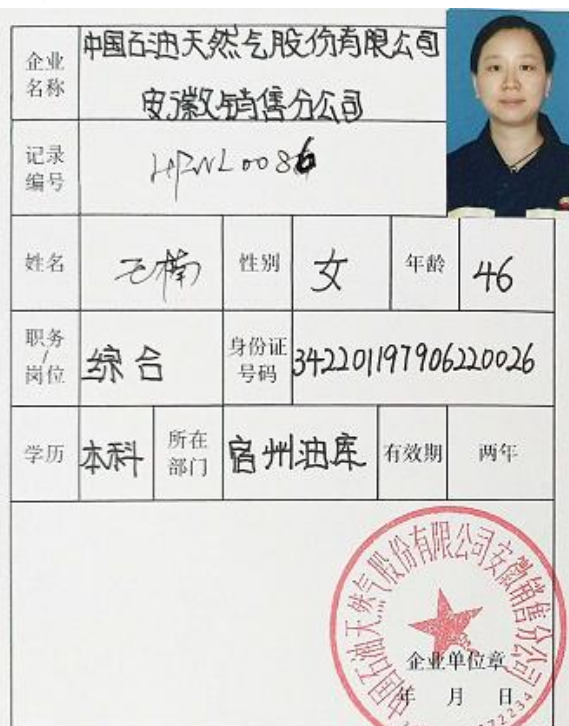 企业名称 中国石油天然气股份有限公司
安徽销售分公司
记录编号
姓名 楠 性别 女 年龄 46
职务/岗位 综合 身份证号码 342201197906220026
学历 本科 所在部门 宿州油库 有效期 两年
中国石油天然气股份有限公司安徽销售分公司
企业单位章
年 月 日